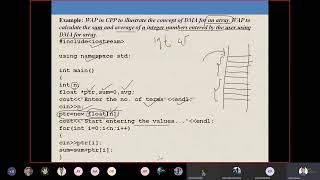 Example: WAP in CPP to illustrate the concept of DMA for an array. WAP to
calculate the sum and average of n integer numbers entered by the user using
DMA for array.
#include<iostream>
using namespace std;
int main()
{
int n;
float *ptr,sum=0,avg;
cout<<"Enter the no. of terms"<<endl;
cin>>n;
ptr=new float[n];
cout<<"Start entering the values..."<<endl;
for(int i=0;i<n;i++)
{
cin>>ptr[i];
sum=sum+ptr[i];
}
int